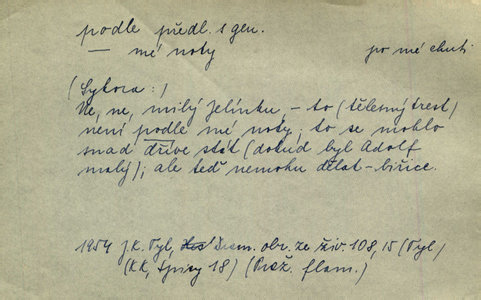 podle předl. s gen.
— mé noty po mé chuti
(Sykora:)
Ne, ne, milý Jelínku, – to (tělesný trest)
není podle mé noty; to se mohlo
snad dříve stát (dokud byl Adolf
malý); ale teď nemohu dělat – biřice.
1954 J. K. Tyl, Dram. obr. ze živ. 108, 15 (Tyl)
(KK, Spisy 18) (Praž. flam.)